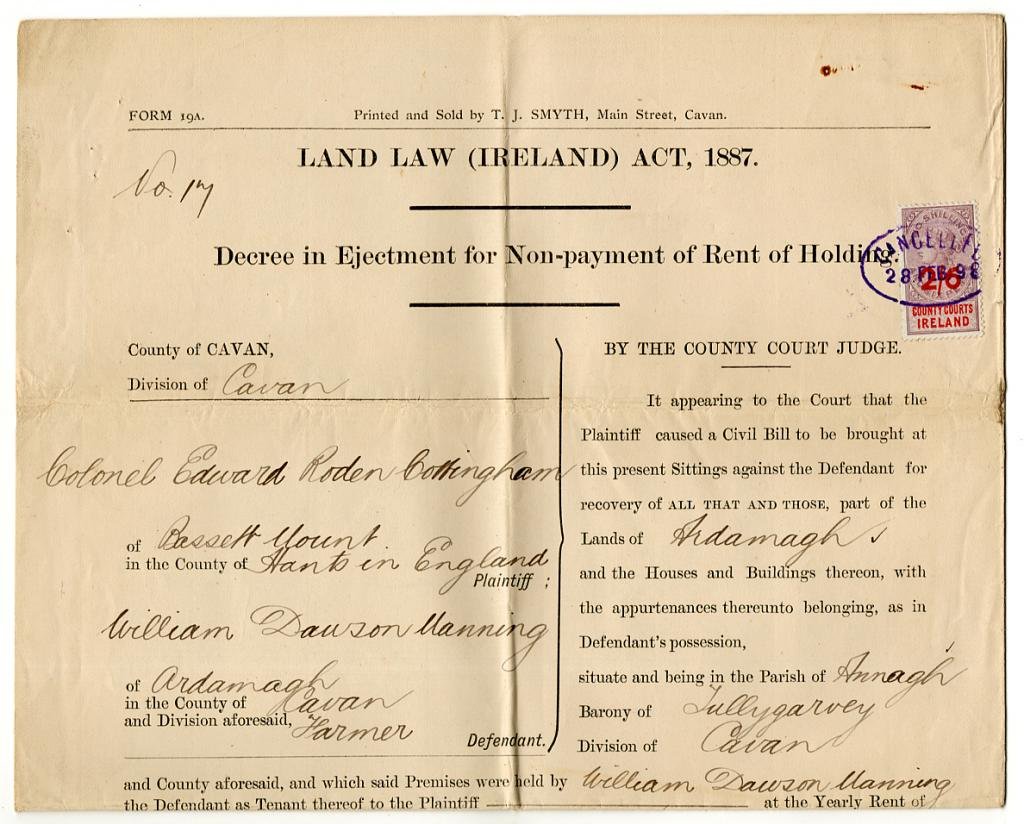 FORM 19A.
Printed and Sold by T. J. SMYTH, Main Street, Cavan.
LAND LAW (IRELAND) ACT, 1887.
No. 17
Decree in Ejectment for Non-payment of Rent of Holding.
CANCELLED
28 FEB 98
SHILLING
2/6
COUNTY COURTS
IRELAND
County of CAVAN,
Division of Cavan
Colonel Edward Roden Cottingham
of Bassett Mount.
in the County of Hants in England
Plaintiff ;
William Dawson Manning
of Ardamagh
in the County of Cavan
and Division aforesaid, Farmer
Defendant.
BY THE COUNTY COURT JUDGE.
It appearing to the Court that the
Plaintiff caused a Civil Bill to be brought at
this present Sittings against the Defendant for
recovery of ALL THAT AND THOSE, part of the
Lands of Ardamagh
and the Houses and Buildings thereon, with
the appurtenances thereunto belonging, as in
Defendant's possession,
situate and being in the Parish of Annagh
Barony of Tullygarvey
Division of Cavan
and County aforesaid, and which said Premises were held by William Dawson Manning
the Defendant as Tenant thereof to the Plaintiff at the Yearly Rent of